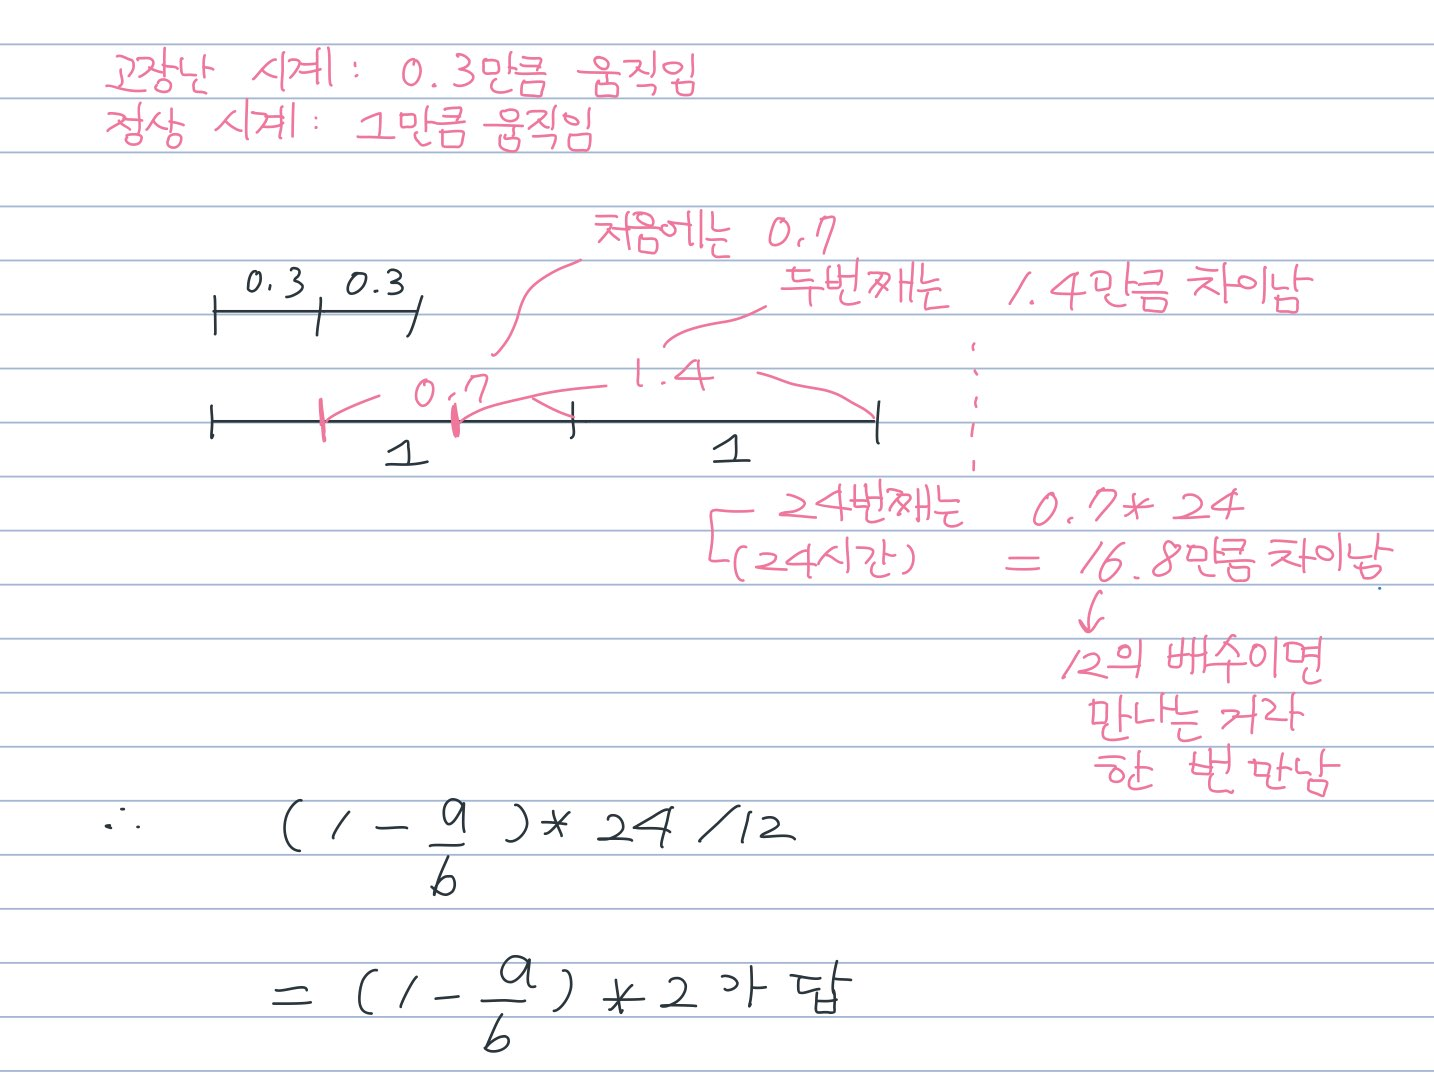 고장난 시계: 0.3만큼 움직임
정상 시계: 1만큼 움직임
처음에는 0.7
두번째는 1.4만큼 차이남
0.3 0.3
0.7 1.4
1 1
24번째는 0.7*24
(24시간) = 16.8만큼 차이남
12의 배수이면
만나는 거라
한 번 만남
∴ (1-a/b)*24/12
= (1-a/b)*2가 답